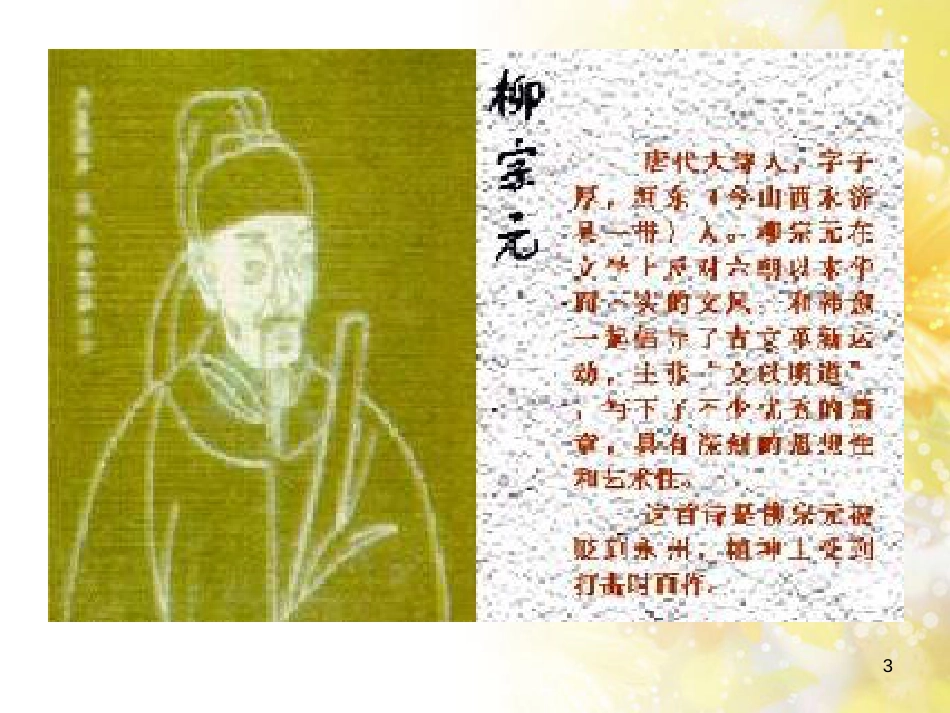 柳宗元
唐代大诗人，字子
厚，河东（今山西永济
县一带）人。柳宗元在
文学上反对六朝以来华
而不实的文风，和韩愈
一起倡导了古文革新运
动，主张“文以明道”
，写下了不少优秀的篇
章，具有深刻的思想性
和艺术性。
这首诗是柳宗元被
贬到永州，精神上受到
打击时而作。
3